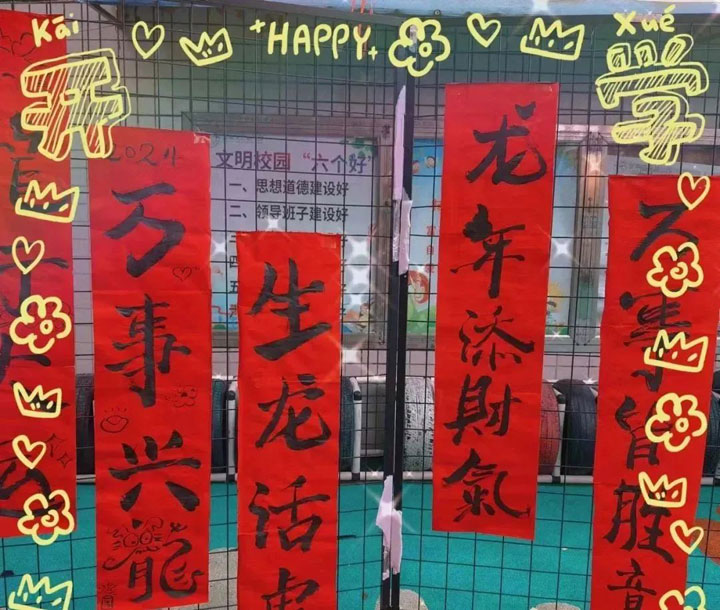 Kāi
开
HAPPY
Xué
学
文明校园“六个好”
一、思想道德建设好
二、领导班子建设好
三
四
五
2024
万事兴龍
生龙活虎
龙年添财氣
万事皆胜意